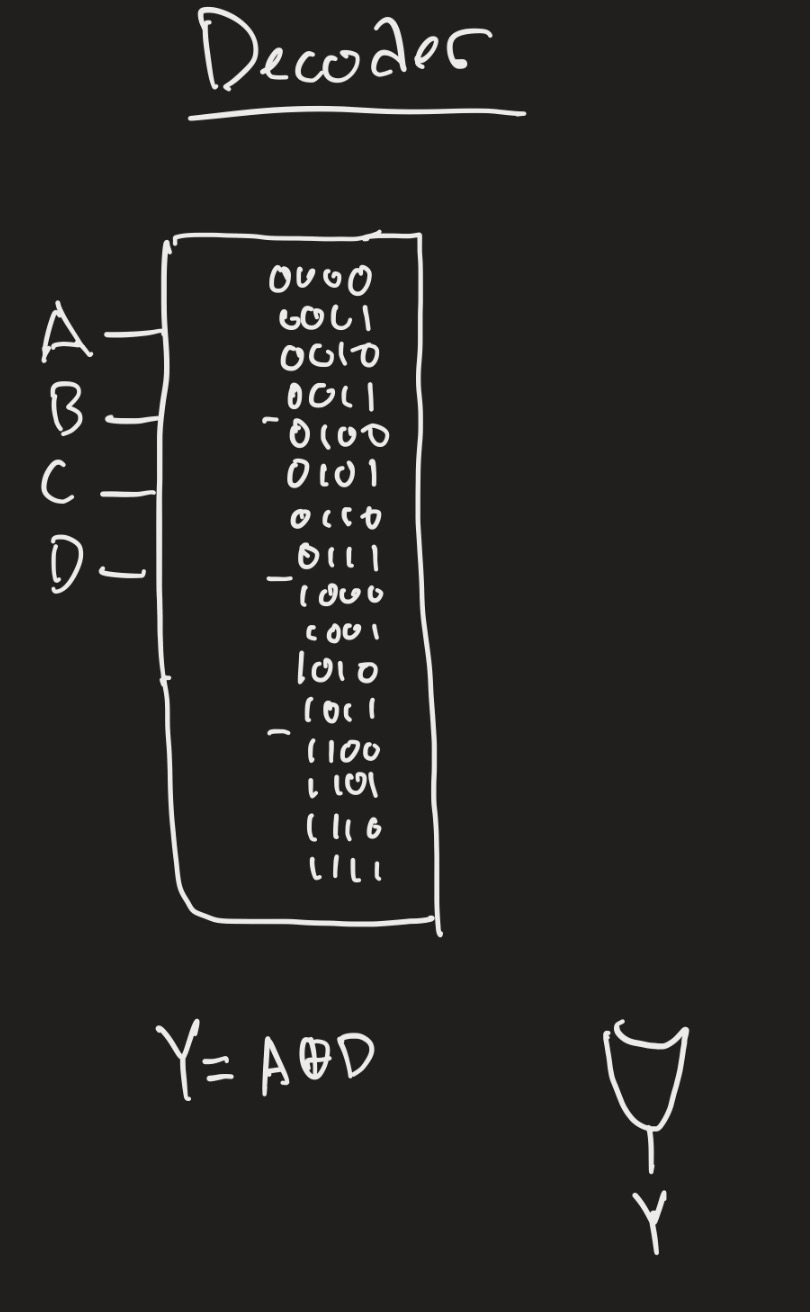 Decoder
0000
0001
A
0010
0011
B
0100
0101
C
0110
0111
D
1000
1001
1010
1011
1100
1101
1110
1111
Y = A⊕D
Y